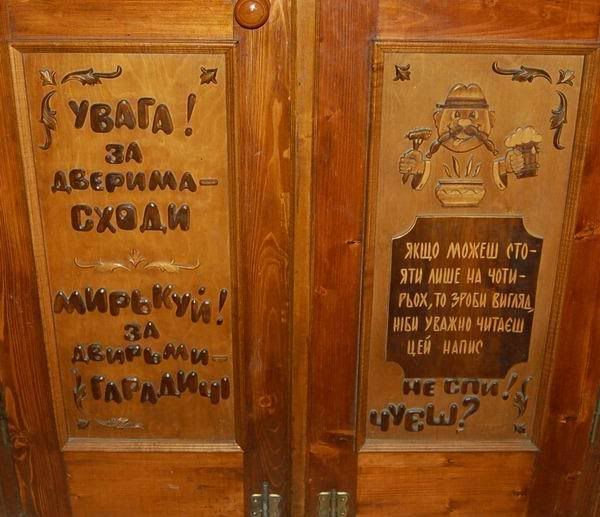 УВАГА!
ЗА
ДВЕРИМА-
СХОДИ
МИРЬКУЙ!
ЗА
ДВИРЬМИ-
ГАРАДИЧІ
ЯКЩО МОЖЕШ СТО-
ЯТИ ЛИШЕ НА ЧОТИ-
РЬОХ, ТО ЗРОБИ ВИГЛЯД,
НІБИ УВАЖНО ЧИТАЄШ
ЦЕЙ НАПИС
НЕ СПИ!
ЧУЄШ?